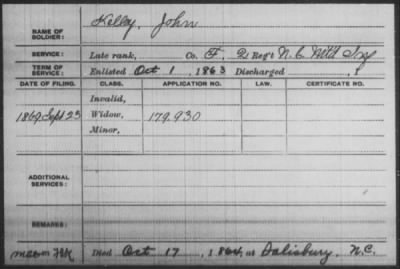 NAME OF SOLDIER: Kelley, John
SERVICE: Late rank, Co. F, 2 Reg't N.C. Mtd Inf
TERM OF SERVICE: Enlisted Oct 1, 1863 Discharged , 1
DATE OF FILING. CLASS. APPLICATION NO. LAW. CERTIFICATE NO.
Invalid,
1869 Sept 23 Widow, 179.930
Minor,
ADDITIONAL SERVICES:
REMARKS:
Died Oct 17, 1864, at Salisbury, N.C.